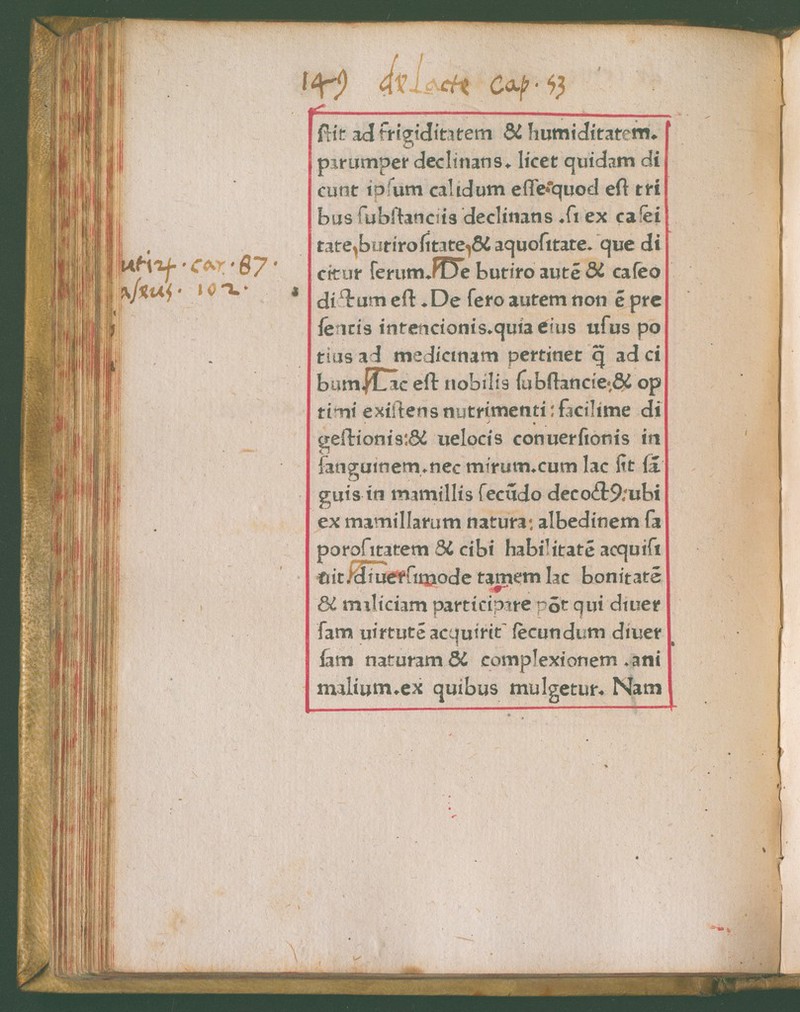 149 de Lacte Cap. 53
ſtit ad frigiditatem & humiditatem.
parumper declinans. licet quidam di
cunt ipſum calidum eſſe: quod eſt tri
bus ſubſtanciis declinans .ſi ex caſei
tate, butiroſitate, & aquoſitate. que di
citur ſerum. De butiro autē & caſeo
dictum eſt . De ſero autem non ē pre
ſentis intencionis. quia eius uſus po
tius ad medicinam pertinet q̄ ad ci
bum. Lac eſt nobilis ſubſtancie: & op
timi exiſtens nutrimenti: facilime di
geſtionis: & uelocis conuerſionis in
ſanguinem. nec mirum. cum lac ſit ſā
guis in mamillis ſecūdo decoctꝰ: ubi
ex mamillarum natura: albedinem ſa
poroſitatem & cibi habilitatē acquiſi
uit. diuerſimode tamem lac bonitatē
& maliciam participare pōt qui diuer
ſam uirtutē acquirit ſecundum diuer
ſam naturam & complexionem .ani
malium. ex quibus mulgetur. Nam
car. 87.
102.